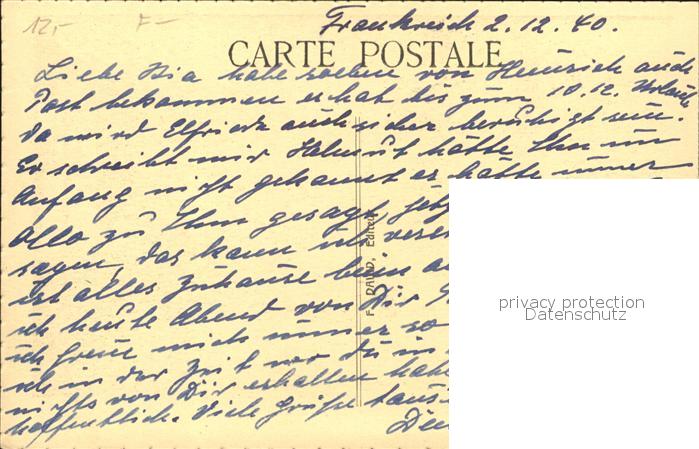 12,- F-
Frankreich 2.12.40.
CARTE POSTALE
Liebe Mia habe soeben von Heinrich auch
Post bekommen er hat bis zum 10.12. Urlaub
da wird Elfriede auch sicher beruhigt sein.
Er schreibt mir Helmut hätte Ihn im
Anfang nicht gekannt er hätte immer
Ollo zu Ihm gesagt, jetz
sagen, das kann ich vers
ist alles zuhause beim a
ich heute Abend von Dir
ich freue mich immer so
ich in der Zeit wo du in
nichts von Dir erhalten habe
hoffentlich. Viele Grüße taus
Dein
F. DAVID, Editeur
privacy protection
Datenschutz